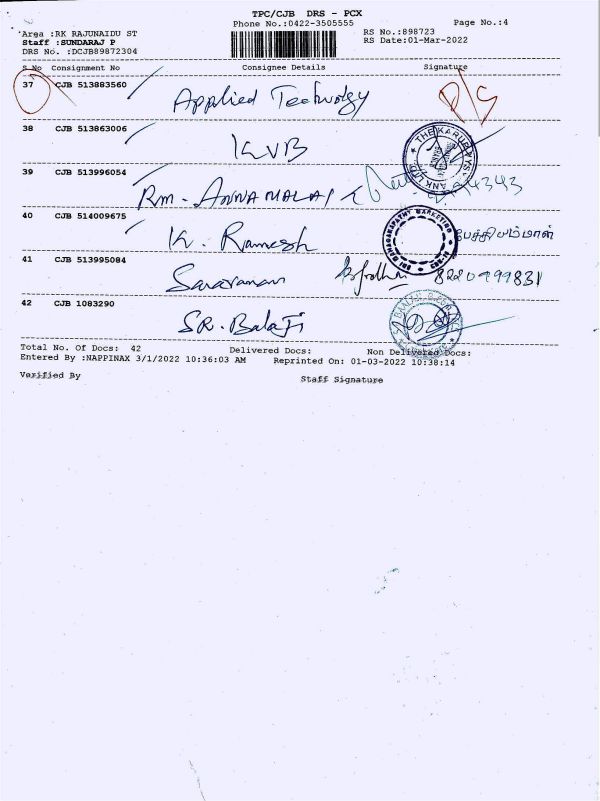 TPC/CJB DRS - PCX
Phone No.:0422-3505555 Page No.:4
Area :RK RAJUNAIDU ST RS No.:898723
Staff :SUNDARAJ P RS Date:01-Mar-2022
DRS No. :DCJB89872304
S No Consignment No Consignee Details Signature
37 CJB 513883560 Applied P/S
38 CJB 513863006 KVB
39 CJB 513996054 Rm. ANNAMALAI
40 CJB 514009675 K. Ramesh
41 CJB 513995084 Saravanan
42 CJB 1083290 SR. Balaji
Total No. Of Docs: 42 Delivered Docs: Non Delivered Docs:
Entered By :NAPPINAX 3/1/2022 10:36:03 AM Reprinted On: 01-03-2022 10:38:14
Verified By Staff Signature